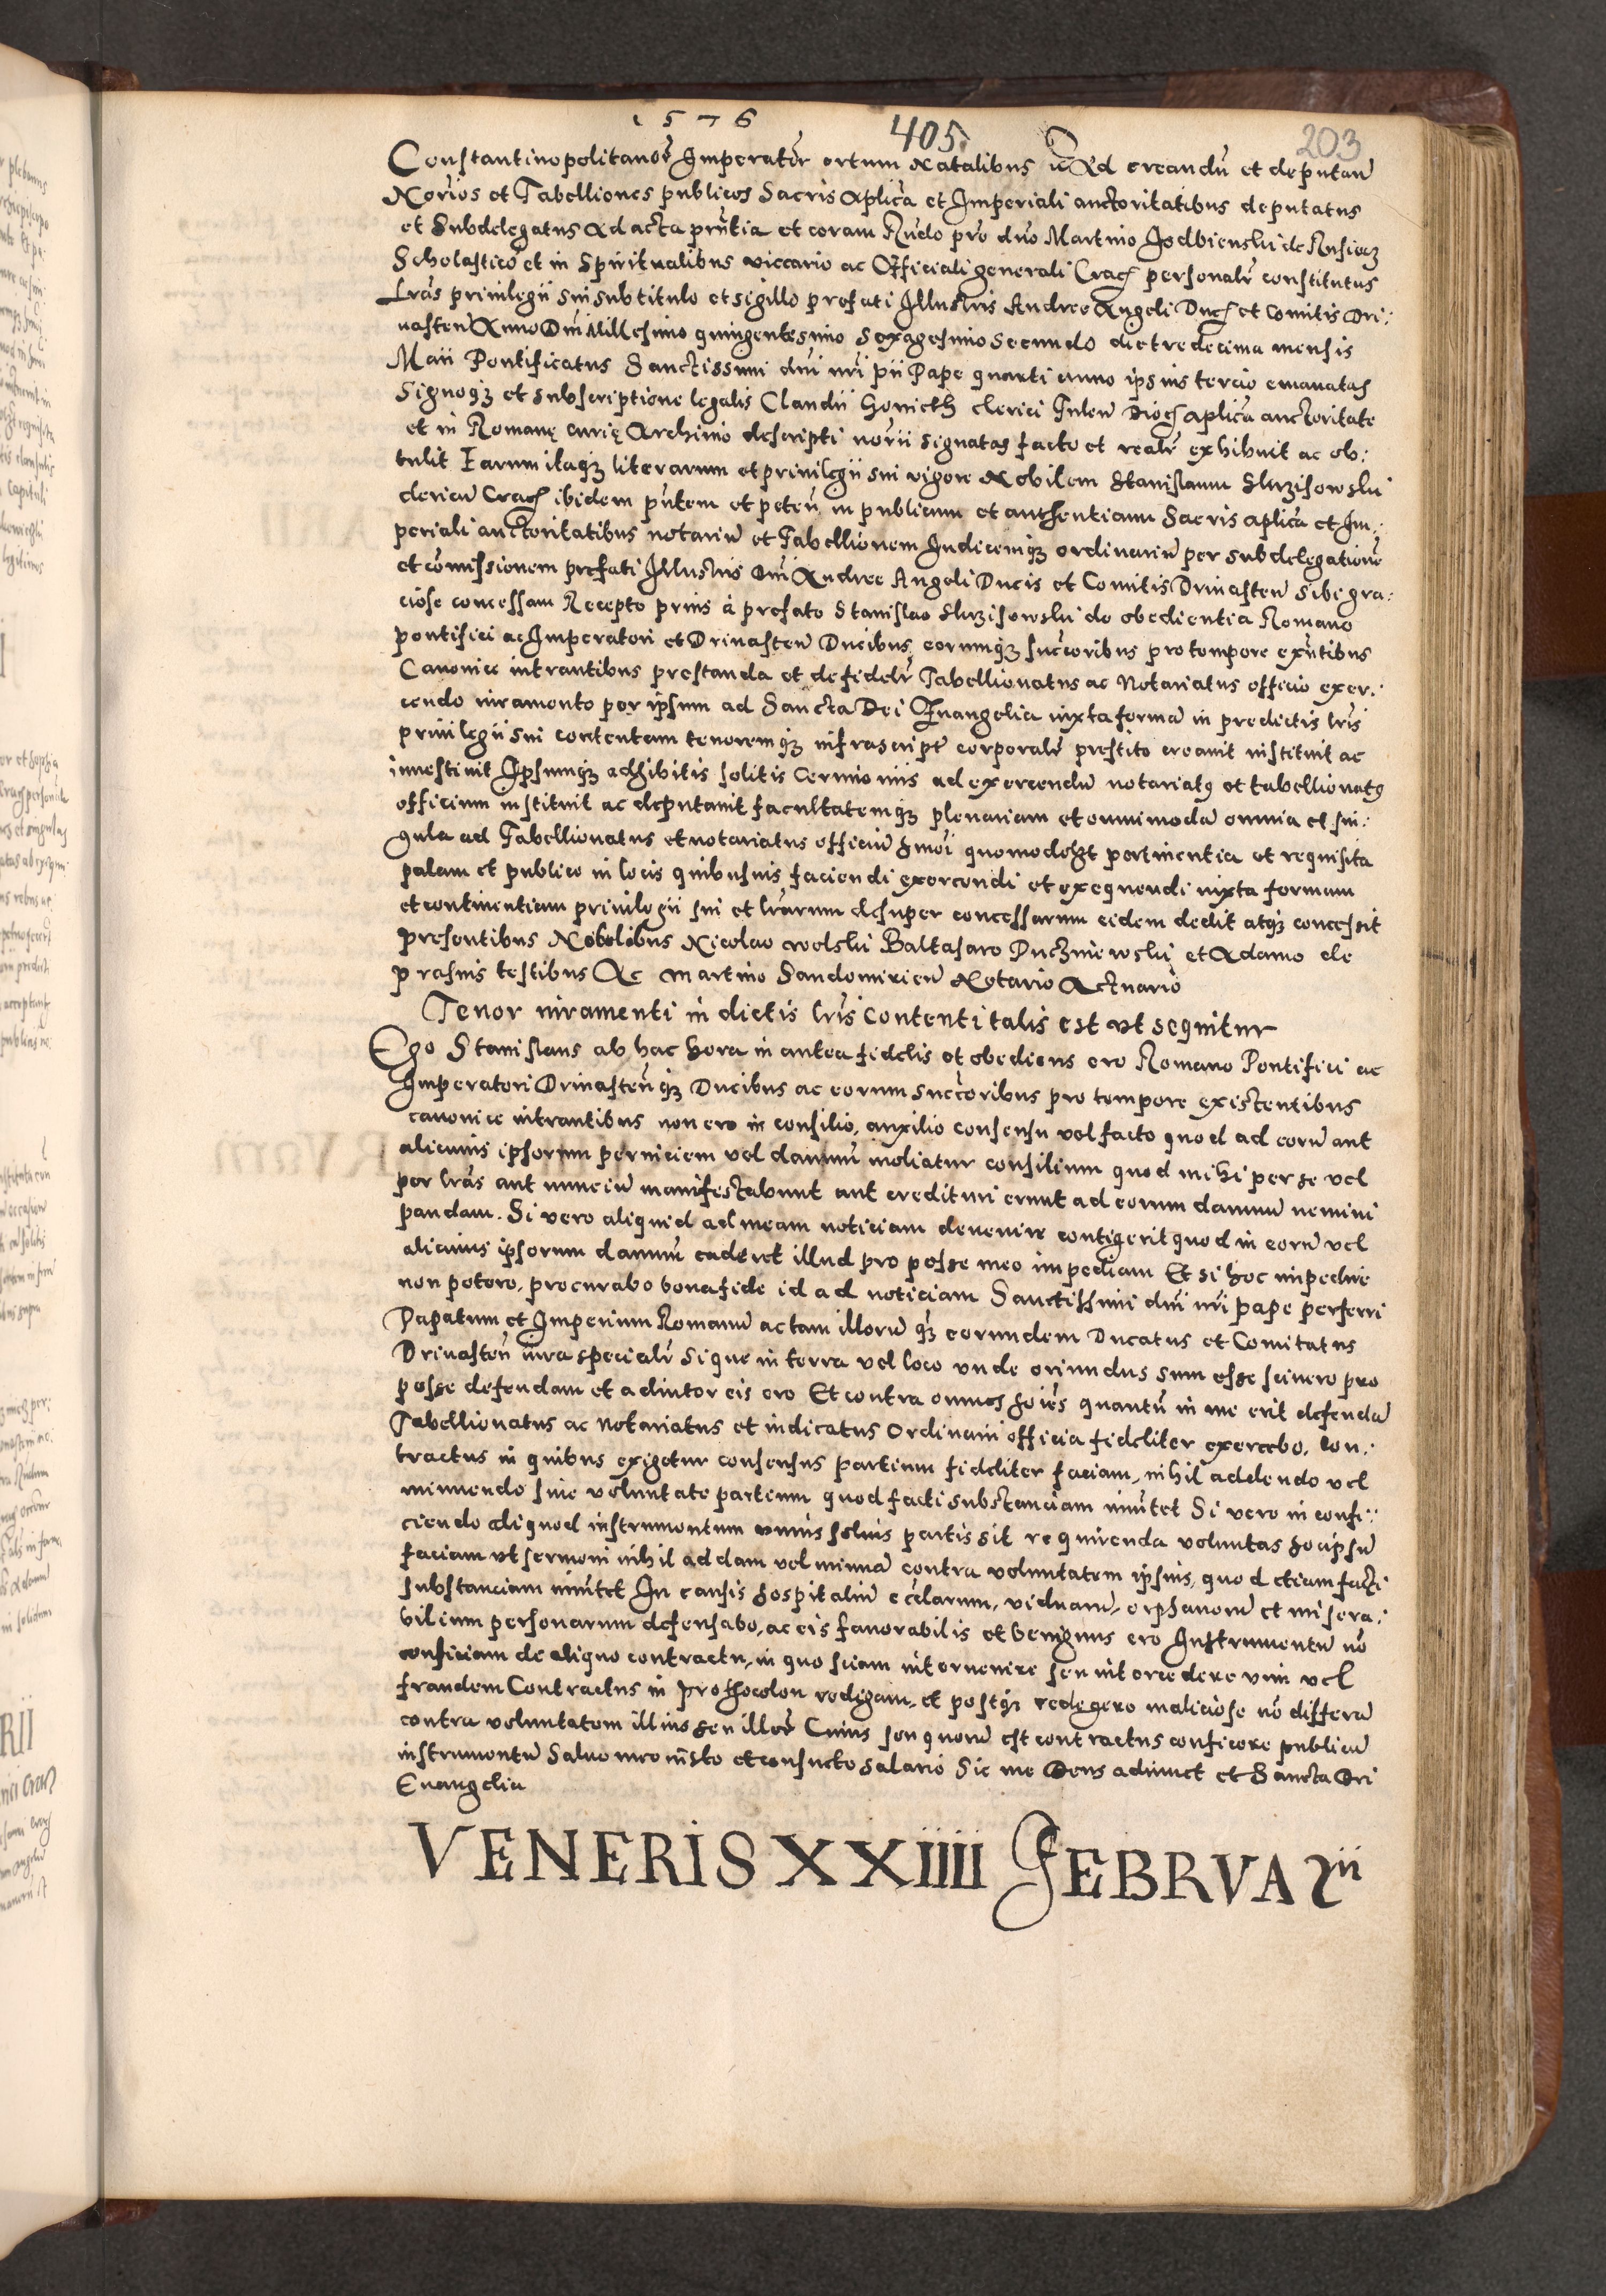 1576 405. 203
Constantinopolitanor͂ Imperator͂ ortum Natalibus Ad creandū et deputan̄
Nōrios et Tabelliones publicos Sacris Aplīca et Imperiali auctoritatibus deputatus
et Subdelegatus Ad acta prn̄tia et coram Rndo pre dno Martino Isdbienski de
Scholastico et in Spiritualibus viccario ac Officiali generali Crac͂ personalr͂ constitutus
Lrās privilegii sui sub titulo et sigillo prefati Illustris Andree Angeli Duc͂ et Comitis Dri:
nasten̄ Anno Dni Millesimo quingentesimo Sexagesimo Secundo die tredecima mensis
Maii Pontificatus Sanctissimi dni nri pii Pape quarti anno ipsius tercio emanatas
Signoq3 et subscriptione legalis Claudii clerici Tulen̄ Dioc͂ aplīca auctoritate
et in Romanę curię Archivio descripti norii signatas facto et realr͂ exhibuit ac ob:
tulit Earum itaq3 literarum et privilegii sui vigore Nobilem Stanislaum Slurzisowski
clericū Crac͂ ibidem pntem et peten̄ in publicum et authenticum Sacris aplīca et Im:
periali auctoritatibus notariū et Tabellionem Iudicemq3 ordinariū per subdelegationē
et cōmissionem prefati Illustris Dni Andree Angeli Ducis et Comitis Drinasten̄ sibi gra:
ciose concessam Recepto prius à prefato Stanislao Slurzisowski de obedientia Romano
pontifici ac Imperatori et Drinasten̄ Ducibus eorumq3 succ̄oribus pro tempore exn̄tibus
Canonice intrantibus prestanda et de fidelr͂ Tabellionatus ac Notariatus officio exer:
cendo iuramento per ipsum ad Sancta Dei Evangelia iuxta formā in predictis lrīs
privilegii sui contentam tenoremq3 infrascript͂ corporalr͂ prestito creavit instituit ac
investivit Ipsumq3 adhibitis solitis Cerimoniis ad exercendū notariatus et tabellionatus
officium instituit ac deputavit facultatemq3 plenariam et omnimodā omnia et sin:
gula ad Tabellionatus et notariatus officiū hmōi quomodolibet pertinentia et requisita
palam et publice in locis quibusuis faciendi exercendi et exequendi iuxta formam
et continentiam privilegii sui et lrārum desuper concessarum eidem dedit atq3 concessit
presentibus Nobilibus Nicolao wolski Baltasaro Duczniewski et Adamo ele
prasnis testibus Ac Martino Sandomirien̄ Notario Actuario
Tenor iuramenti in dictis lrīs contenti talis est vt sequitur
Ego Stanislaus ab hac hora in antea fidelis et obediens ero Romano Pontifici ac
Imperatori Drinasten̄q3 Ducibus ac eorum succ̄oribus pro tempore existentibus
canonice intrantibus non ero in consilio, auxilio consensu vel facto quod ad eorū aut
alicuius ipsorum perniciem vel damnū moliatur consilium quod mihi per se vel
per lrās aut nunciū manifestabunt aut credituri erunt ad eorum damnū nemini
pandam. Si vero aliquid ad meam noticiam devenire contigerit quod in eorū vel
alicuius ipsorum damnū caderet illud pro posse meo impediam Et si hoc impedire
non potero, procurabo bona fide id ad noticiam Sanctissimi dni nri pape perferri
Papatum et Imperium Romanū ac tam illorū q3 eorundem Ducatus et Comitatus
Drinasten̄ iura specialr͂ si que in terra vel loco vnde oriundus sum esse scivero pro
posse defendam et adiutor eis ero Et contra omnes hoīēs quantū in me erit defendā
Tabellionatus ac Notariatus et iudicatus Ordinarii officia fideliter exercebo, Con:
tractus in quibus exigetur consensus partium fideliter faciam, nihil addendo vel
minuendo sine voluntate partium quod facti substanciam immutet Si vero in confi:
ciendo aliquod instrumentum vnius solius partis sit requirenda voluntas hoc ipsū
faciam vt sermoni nihil addam vel minuā contra voluntatem ipsius, quod etiam facti
substanciam immutet In causis hospitaliū ecc̄larum, viduarū, orphanorū et misera:
bilium personarum defensabo, ac eis favorabilis et benignus ero Instrumentū nō
conficiam de aliquo contractu, in quo sciam intervenire seu intercedere vim vel
fraudem Contractus in prothocolon redigam, et postq3 redegero maliciose nō differā
contra voluntatem illius seu illor͂ Cuius seu quorū est contractus conficere publicū
instrumentū Salvo meo iusto et consueto salario Sic me Deus adiuvet et Sancta Dei
Evangelia
VENERIS XXIIII FEBRVARii